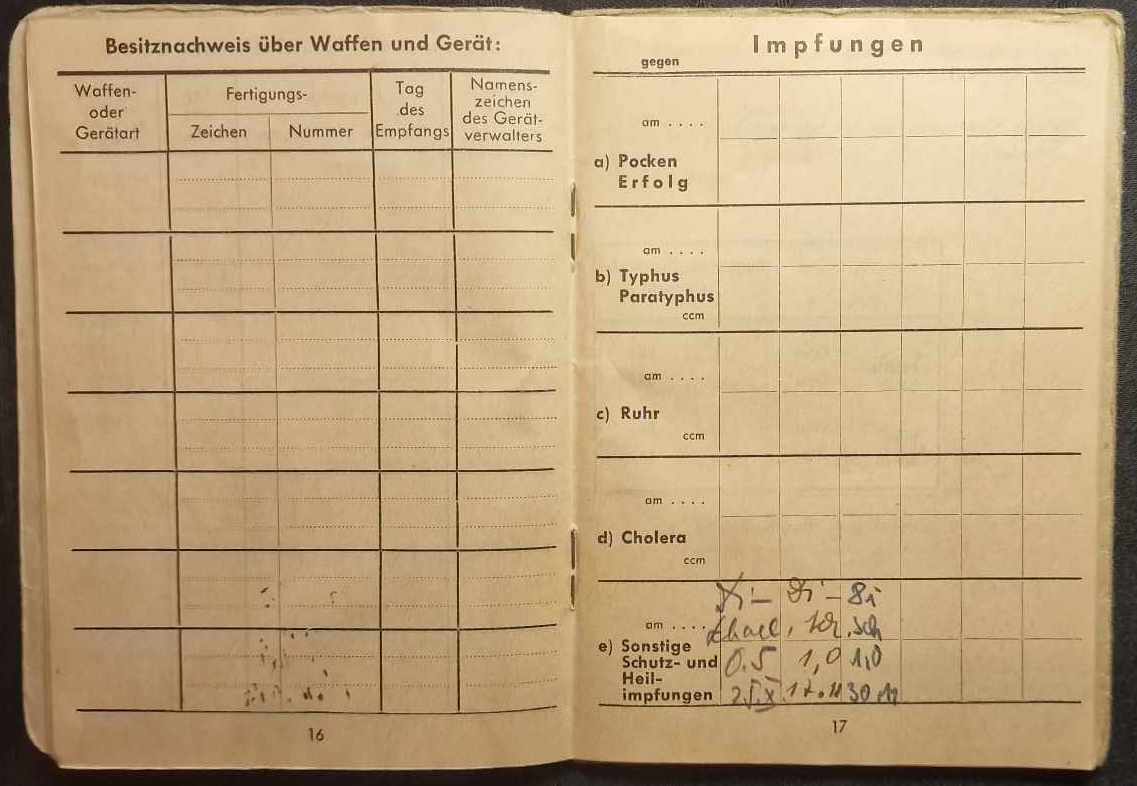 Besitznachweis über Waffen und Gerät:
Waffen-
oder
Gerätart
Fertigungs-
Zeichen
Nummer
Tag
des
Empfangs
Namens-
zeichen
des Gerät-
verwalters
16
Impfungen
gegen
am . . . .
a) Pocken
Erfolg
am . . . .
b) Typhus
Paratyphus
ccm
am . . . .
c) Ruhr
ccm
am . . . .
d) Cholera
ccm
am . . . .
e) Sonstige
Schutz- und
Heil-
impfungen
0.5 1,0 1,0
17